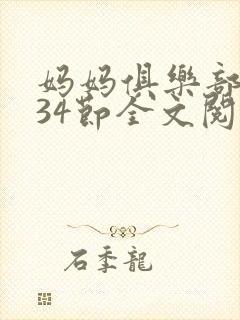 妈妈俱樂部
34节全文閱
石季龍